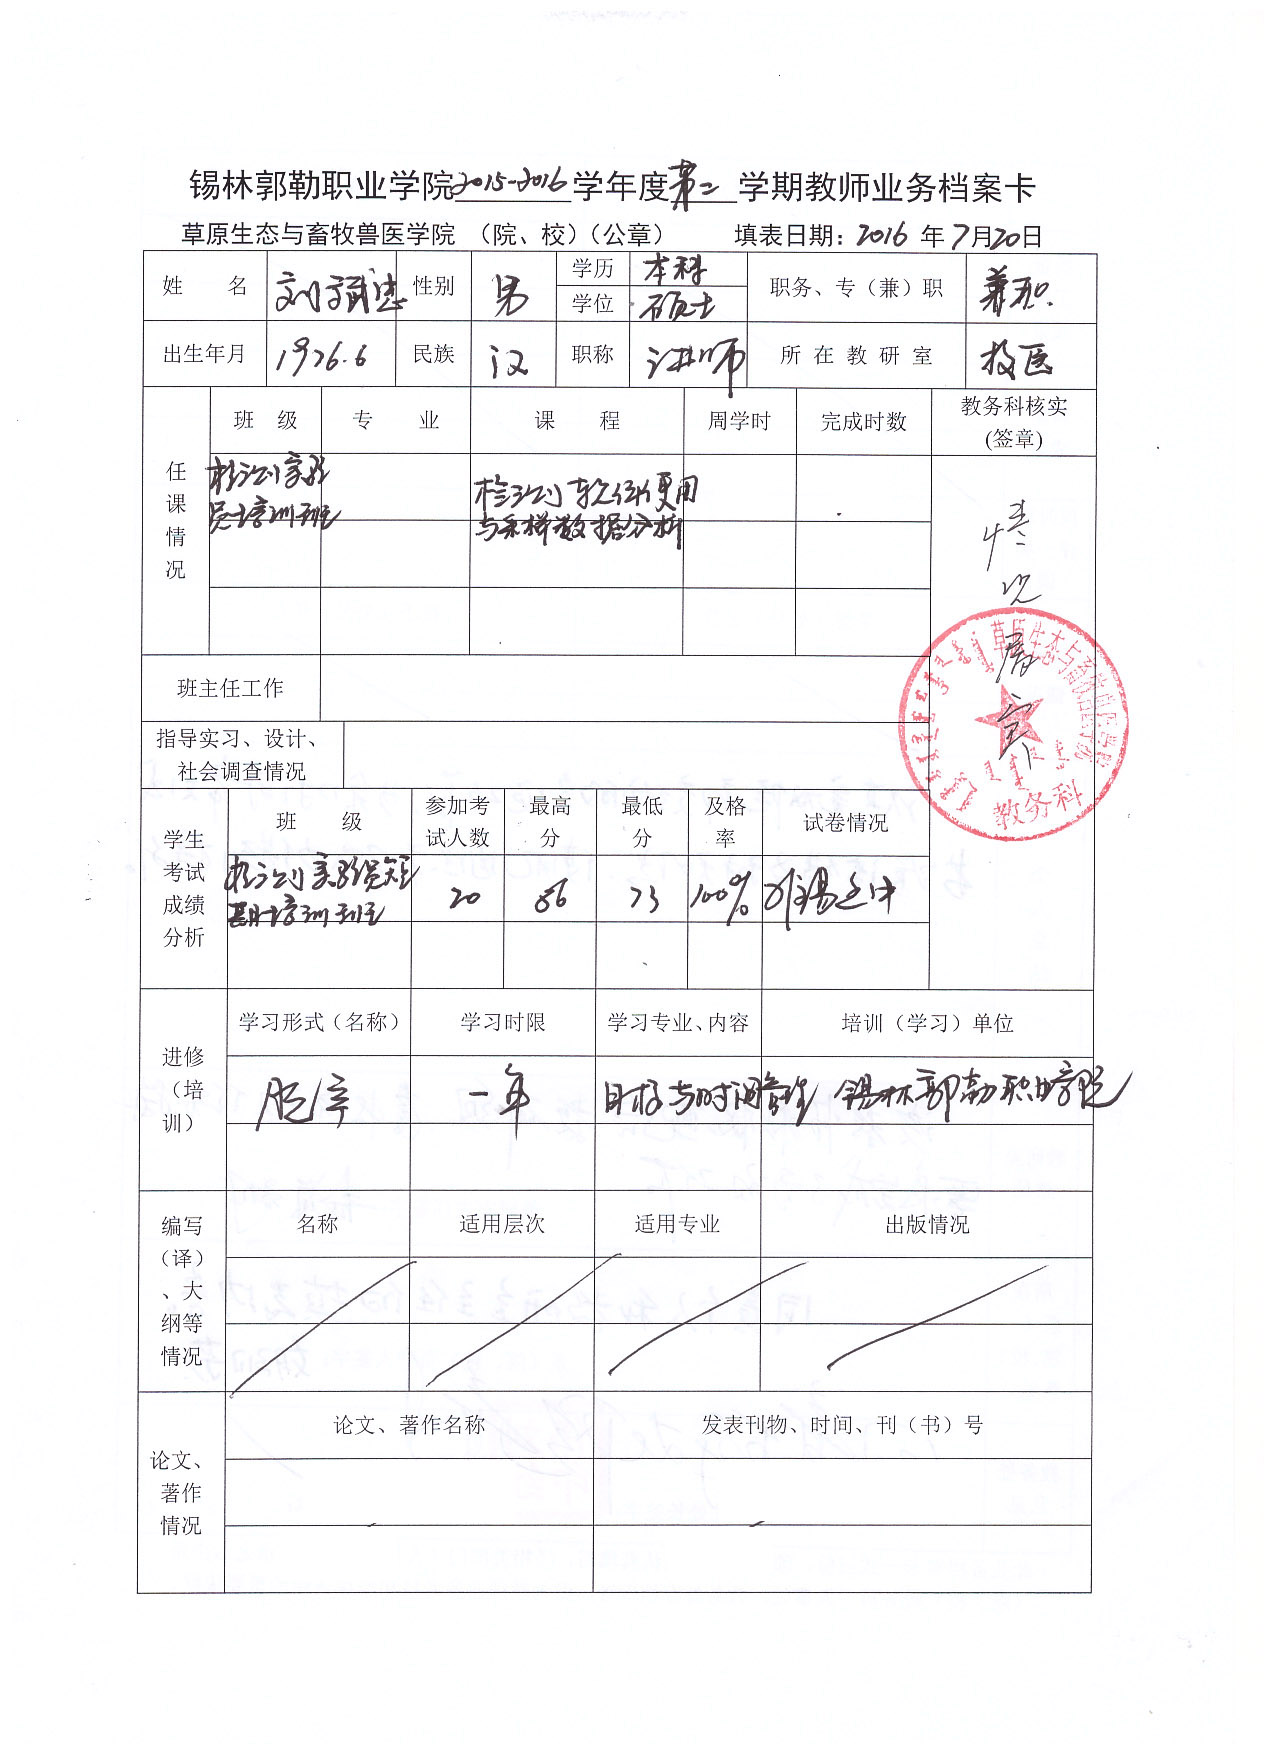 锡林郭勒职业学院2015-2016学年度第二学期教师业务档案卡
草原生态与畜牧兽医学院 （院、校）（公章） 填表日期：2016 年7月20日
姓 名 性别 男 学历 本科 职务、专（兼）职 兼职
学位 硕士
出生年月 1976.6 民族 汉 职称 讲师 所 在 教 研 室
任课情况 班 级 专 业 课 程 周学时 完成时数 教务科核实(签章)
检测实验 检测软件使用
员培训班 与采样数据分析
情况属实
草原生态与畜牧兽医学院
教务科
班主任工作
指导实习、设计、
社会调查情况
学生考试成绩分析 班 级 参加考试人数 最高分 最低分 及格率 试卷情况
检测实验员短 20 86 73 100%
期培训班
进修（培训） 学习形式（名称） 学习时限 学习专业、内容 培训（学习）单位
脱产 一年 目标与时间管理 锡林郭勒职业学院
编写（译）、大纲等情况 名称 适用层次 适用专业 出版情况
论文、著作情况 论文、著作名称 发表刊物、时间、刊（书）号